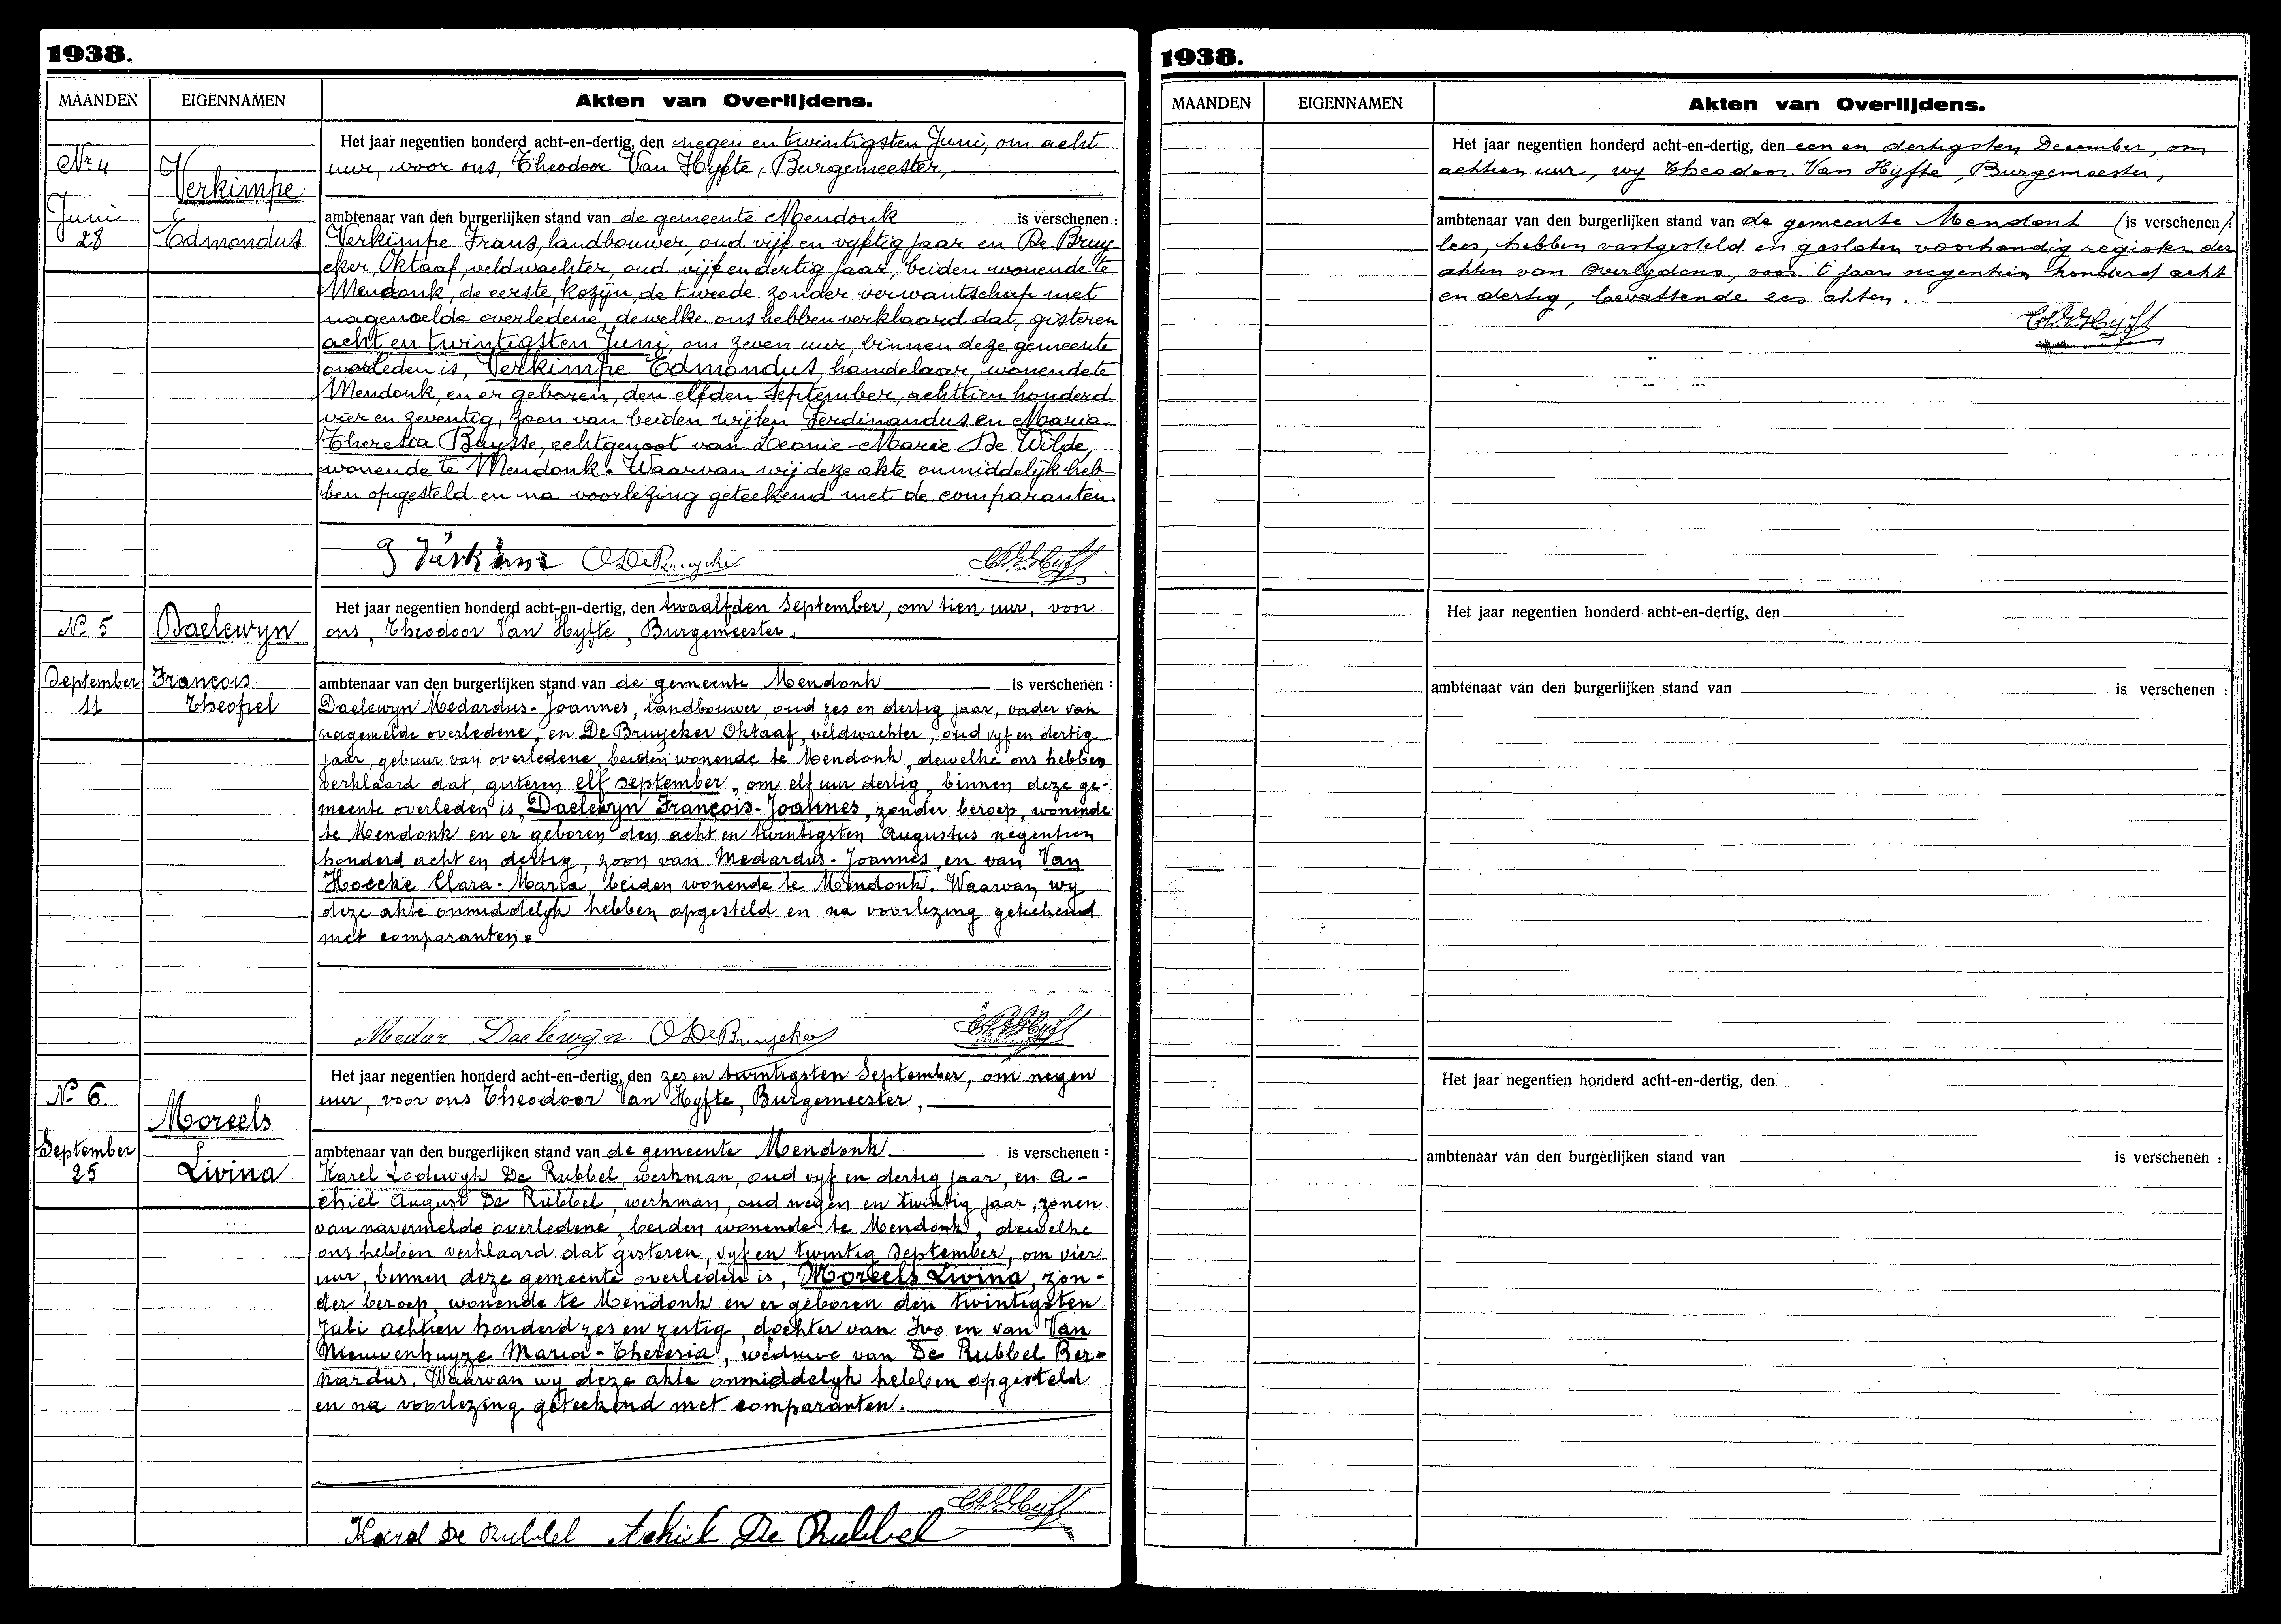 1938.
MAANDEN EIGENNAMEN Akten van Overlijdens.
Nr 4
Juni
28
Verkimpe
Edmondus
Het jaar negentien honderd acht-en-dertig, den negen en twintigsten Juni, om acht
uur, voor ons, Theodoor Van Hyfte, Burgemeester,
ambtenaar van den burgerlijken stand van de gemeente Mendonk is verschenen :
Verkimpe Frans, landbouwer, oud vijf en vyftig jaar en De Bruy
cker Oktaaf, veldwachter, oud vijf en dertig jaar, beiden wonende te
Mendonk, de eerste, kozijn, de tweede zonder verwantschap met
nagemelde overledene, dewelke ons hebben verklaard dat, gisteren
acht en twintigsten Juni, om zeven uur, binnen deze gemeente
overleden is, Verkimpe Edmondus, handelaar, wonende te
Mendonk, en er geboren, den elfden September, achttien honderd
vier en zeventig, zoon van beiden wijlen Ferdinandus en Maria
Theresia Buysse, echtgenoot van Leonie-Marie De Wilde,
wonende te Mendonk. Waarvan wij deze akte onmiddelijk heb-
ben opgesteld en na voorlezing geteekend met de comparanten.
O De Bruycker
No 5
September
11
Daelewyn
François
Theofiel
Het jaar negentien honderd acht-en-dertig, den twaalfden September, om tien uur, voor
ons, Theodoor Van Hyfte, Burgemeester,
ambtenaar van den burgerlijken stand van de gemeente Mendonk is verschenen :
Daelewyn Medardus-Joannes, landbouwer, oud zes en dertig jaar, vader van
nagemelde overledene, en De Bruycker Oktaaf, veldwachter, oud vyf en dertig
jaar, gebuur van overledene, beiden wonende te Mendonk, dewelke ons hebben
verklaard dat, gisteren elf september, om elf uur dertig, binnen deze ge-
meente overleden is, Daelewyn François-Joannes, zonder beroep, wonende
te Mendonk en er geboren den acht en twintigsten Augustus negentien
honderd acht en dertig, zoon van Medardus-Joannes en van Van
Hoecke Clara-Maria, beiden wonende te Mendonk. Waarvan wy
deze akte onmiddelyk hebben opgesteld en na voorlezing geteekend
met comparanten.
Medar Daelewijn. O De Bruycker
No 6.
September
25
Moreels
Livina
Het jaar negentien honderd acht-en-dertig, den zes en twintigsten September, om negen
uur, voor ons Theodoor Van Hyfte, Burgemeester,
ambtenaar van den burgerlijken stand van de gemeente Mendonk is verschenen :
Karel Lodewyk De Rubbel, werkman, oud vyf en dertig jaar, en A-
chiel August De Rubbel, werkman, oud negen en twintig jaar, zonen
van navermelde overledene, beiden wonende te Mendonk, dewelke
ons hebben verklaard dat gisteren, vyf en twintig September, om vier
uur, binnen deze gemeente overleden is, Moreels Livina, zon-
der beroep, wonende te Mendonk en er geboren den twintigsten
Juli achtien honderd zes en zestig, dochter van Ivo en van Van
Nieuwenhuyze Maria-Theresia, weduwe van De Rubbel Ber-
nardus. Waarvan wy deze akte onmiddelyk hebben opgesteld
en na voorlezing geteekend met comparanten.
Karel De Rubbel Achiel De Rubbel
1938.
MAANDEN EIGENNAMEN Akten van Overlijdens.
Het jaar negentien honderd acht-en-dertig, den een en dertigsten December, om
achtien uur, wy Theodoor Van Hyfte, Burgemeester,
ambtenaar van den burgerlijken stand van de gemeente Mendonk (is verschenen/:
lees, hebben vastgesteld en gesloten voorhandig register der
akten van Overlydens, voor 't jaar negentien honderd acht
en dertig, bevattende zes akten.
Het jaar negentien honderd acht-en-dertig, den
ambtenaar van den burgerlijken stand van is verschenen :
Het jaar negentien honderd acht-en-dertig, den
ambtenaar van den burgerlijken stand van is verschenen :